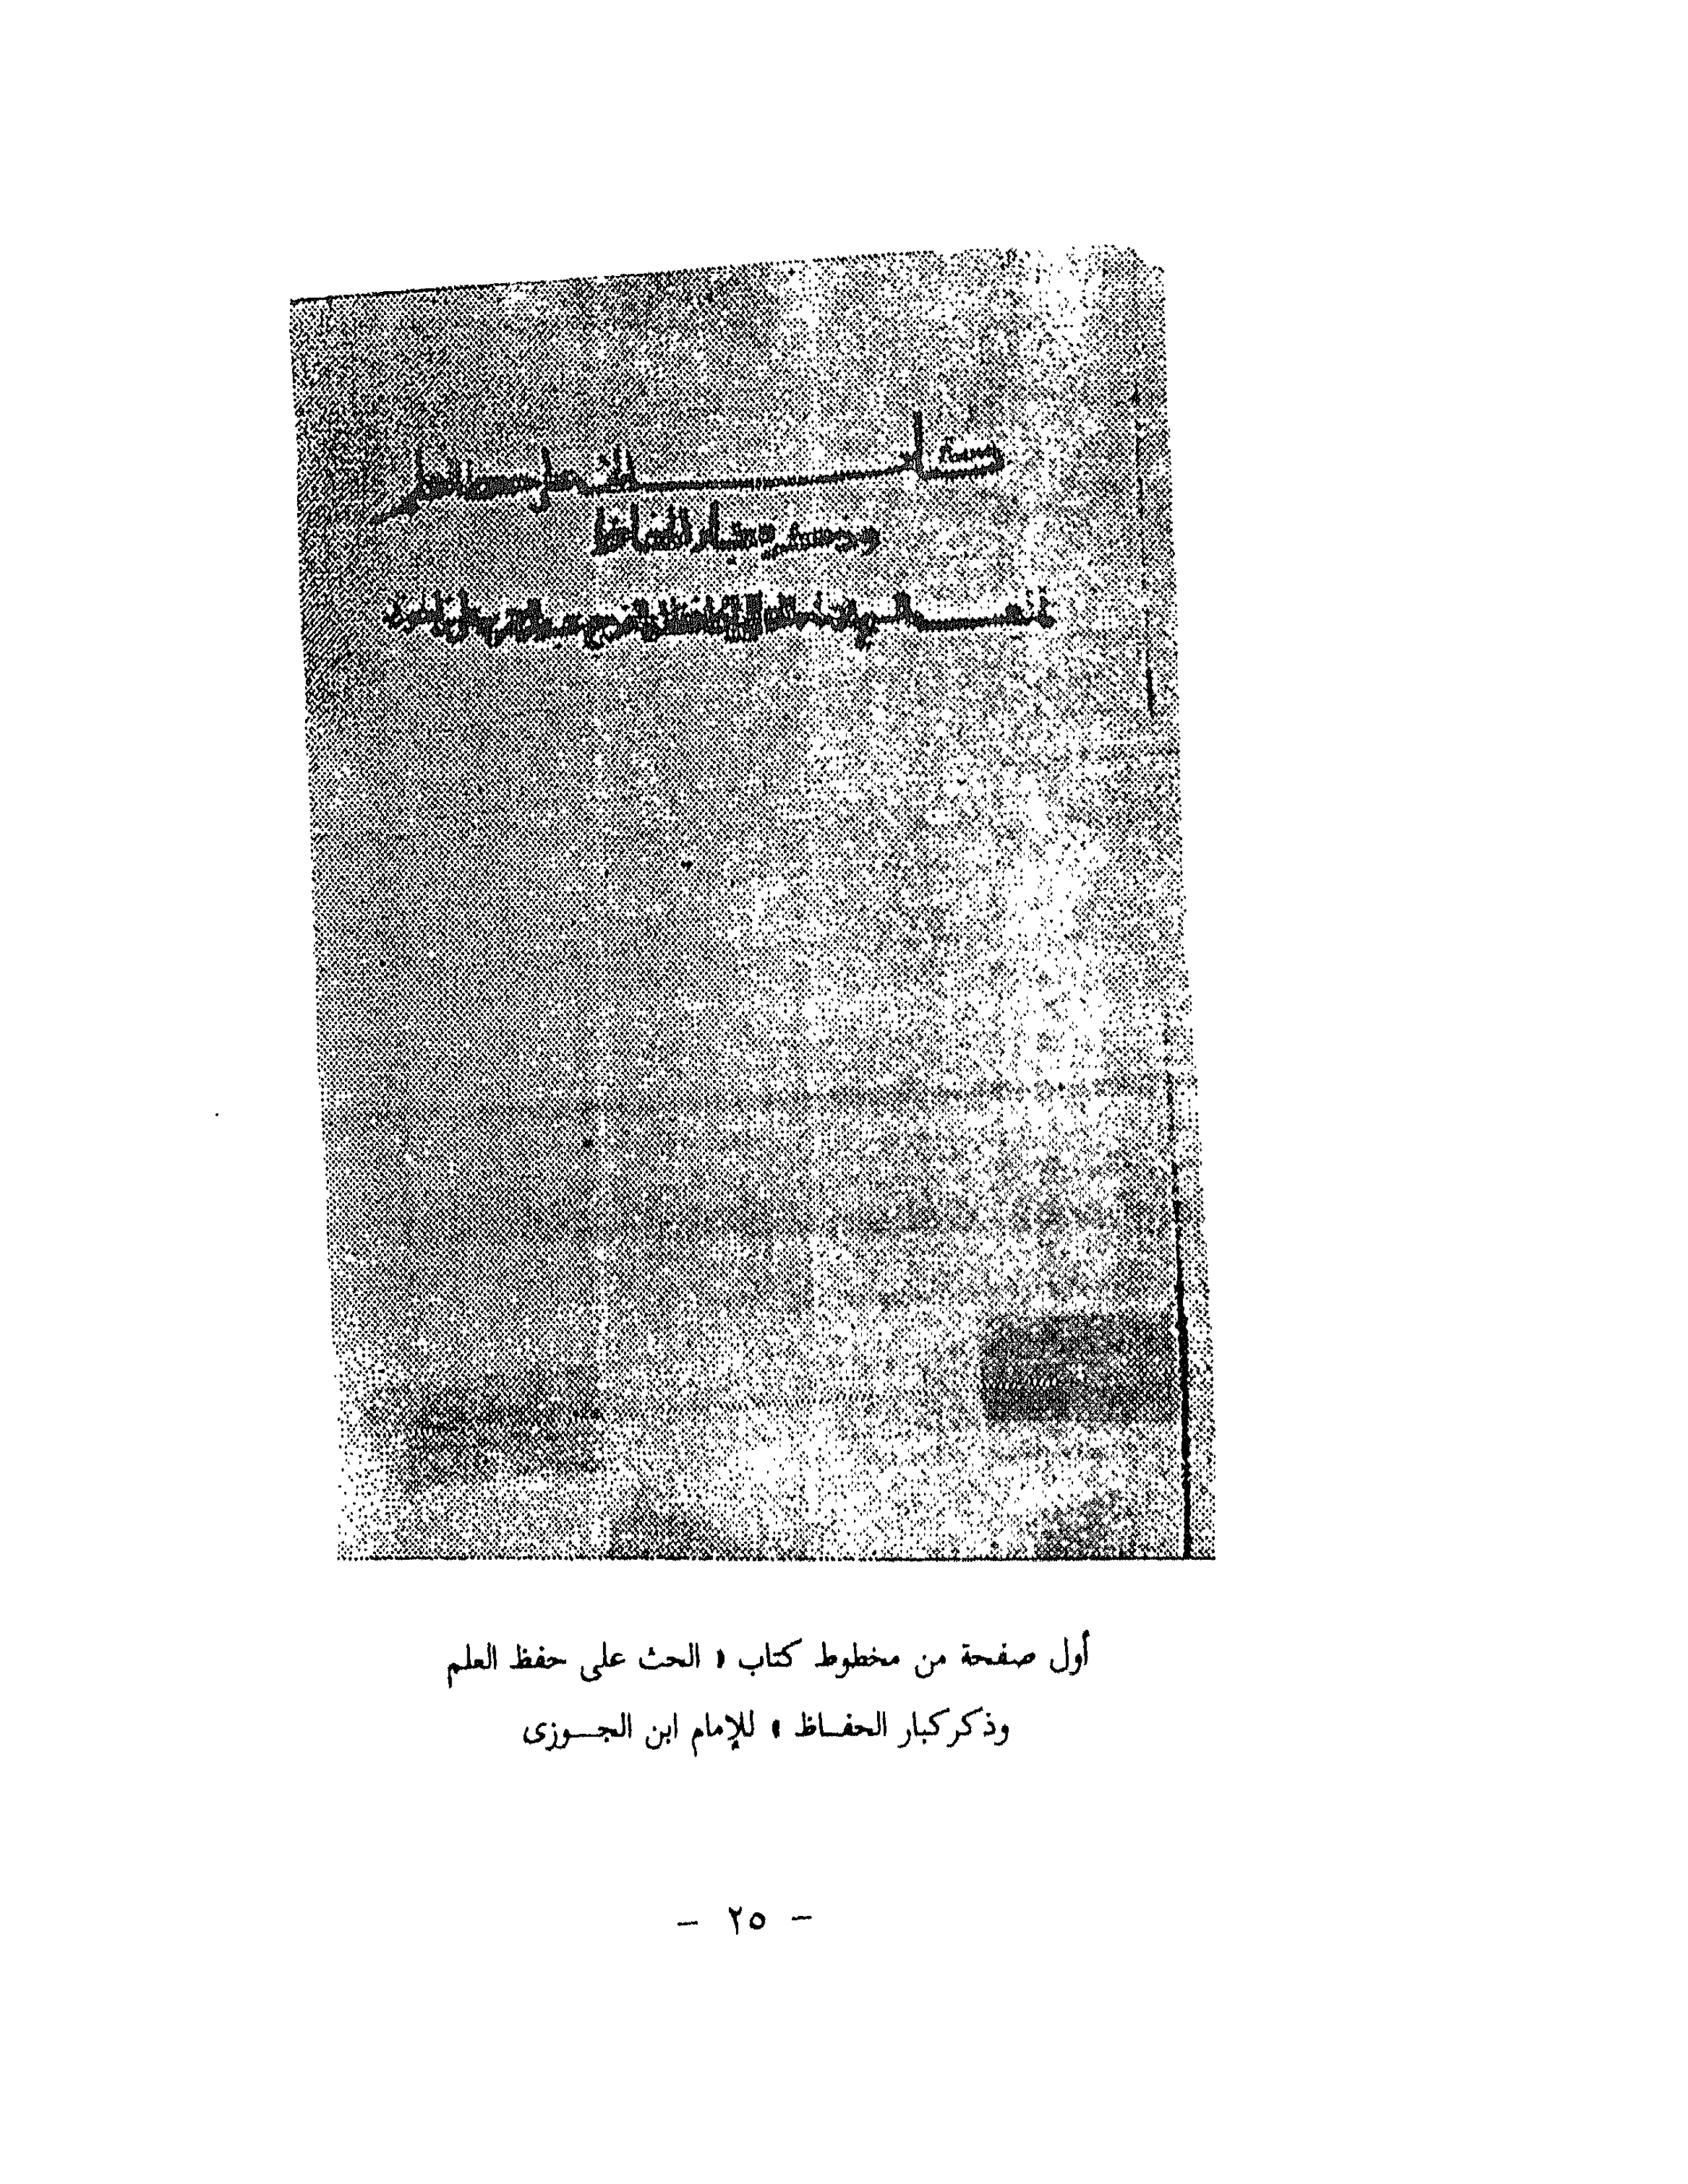 كتاب الحث على حفظ العلم
وذكر كبار الحفاظ
أول صفحة من مخطوط كتاب « الحث على حفظ العلم
وذكر كبار الحفـاظ » للإمام ابن الجـــوزى
– ٢٥ –